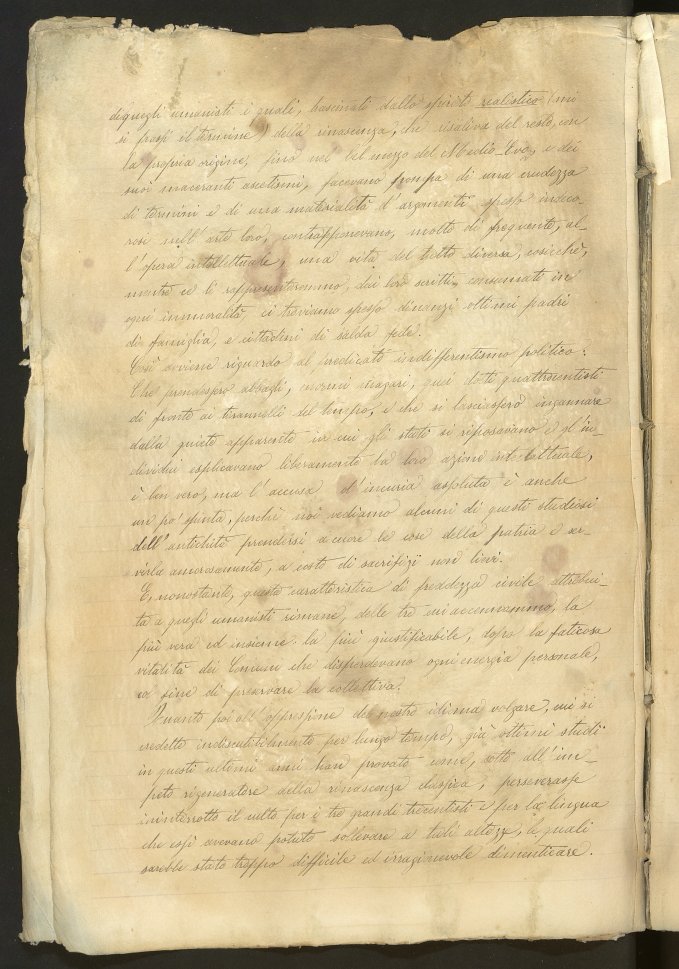 di quegli umanisti i quali, fascinati dallo spirito realistico (mi
si passi il termine) della rinascenza, che risaliva del resto, con
la propria origine, fino nel bel mezzo del Medio-Evo, e dei
suoi maceranti ascetismi, facevano pompa di una crudezza
di termini e di una materialità d'argomenti spesso indeco-
rosi nell'arte loro, contrapponevano, molto di frequente, al-
l'opera intellettuale, una vita del tutto diversa, cosicchè,
mentre ce li rappresenteremmo, dai loro scritti, consumati in
ogni immoralità, ci troviamo spesso dinanzi ottimi padri
di famiglia, e cittadini di salda fede.
Così diviene riguardo al predicato indifferentismo politico:
Che prendessero abbagli, enormi magari, quei dotti quattrocentisti
di fronte ai tirannelli del tempo, e che si lasciassero ingannare
dalla quiete apparente in cui gli stati si riposavano e gl'in-
dividui esplicavano liberamente la loro azione intellettuale,
è ben vero, ma l'accusa d'incuria assoluta è anche
un po' spinta, perchè noi vediamo alcuni di questi studiosi
dell'antichità prendersi a cuore le cose della patria e ser-
virla amorosamente, a costo di sacrifizi non lievi.
E, nonostante, questa caratteristica di freddezza civile attribui-
ta a quegli umanisti rimane, delle tre cui accennammo, la
più vera ed insieme la più giustificabile, dopo la faticosa
vitalità dei Comuni che disperdevano ogni energia personale,
a fine di preservare la collettiva.
Quanto poi all'oppressione del nostro idioma volgare, cui si
credette indiscutibilmente per lungo tempo, già ottimi studii
in questi ultimi anni han provato come, sotto all'im-
peto rigeneratore della rinascenza classica, perseverasse
ininterrotto il culto per i tre grandi trecentisti e per la lingua
che essi avevano potuto sollevare a tali altezze, le quali
sarebbe stato troppo difficile ed irragionevole dimenticare.